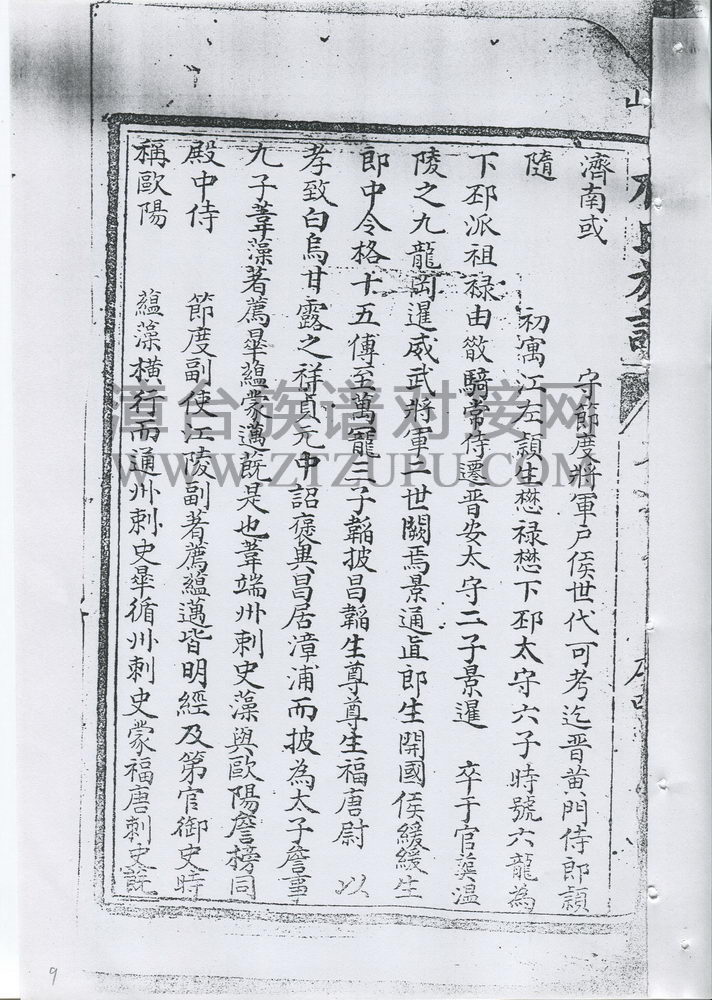 林氏族譜
濟南或 守節度將軍戶侯世代可考迄晋黄門侍郎潁
隨 初寓江左潁生懋禄懋下邳太守六子時號六龍為
下邳派祖禄由散騎常侍遷晋安太守二子景暹 卒于官葬温
陵之九龍岡暹威武將軍二世闕焉景通直郎生開國侯緩緩生
郎中令格十五傳至萬寵三子韜披昌韜生尊尊生福唐尉 以
孝致白烏甘露之祥貞元中詔褒異昌居漳浦而披為太子詹事
九子葦藻著薦曅藴蒙邁蔇是也葦端州剌史藻與歐陽詹榜同
殿中侍 節度副使江陵副著薦藴邁皆明經及第官御史時
稱歐陽 藴藻横行而通州剌史曅循州剌史蒙福唐剌史蔇
漳台族谱对接网
WWW.ZTZUPU.COM
9